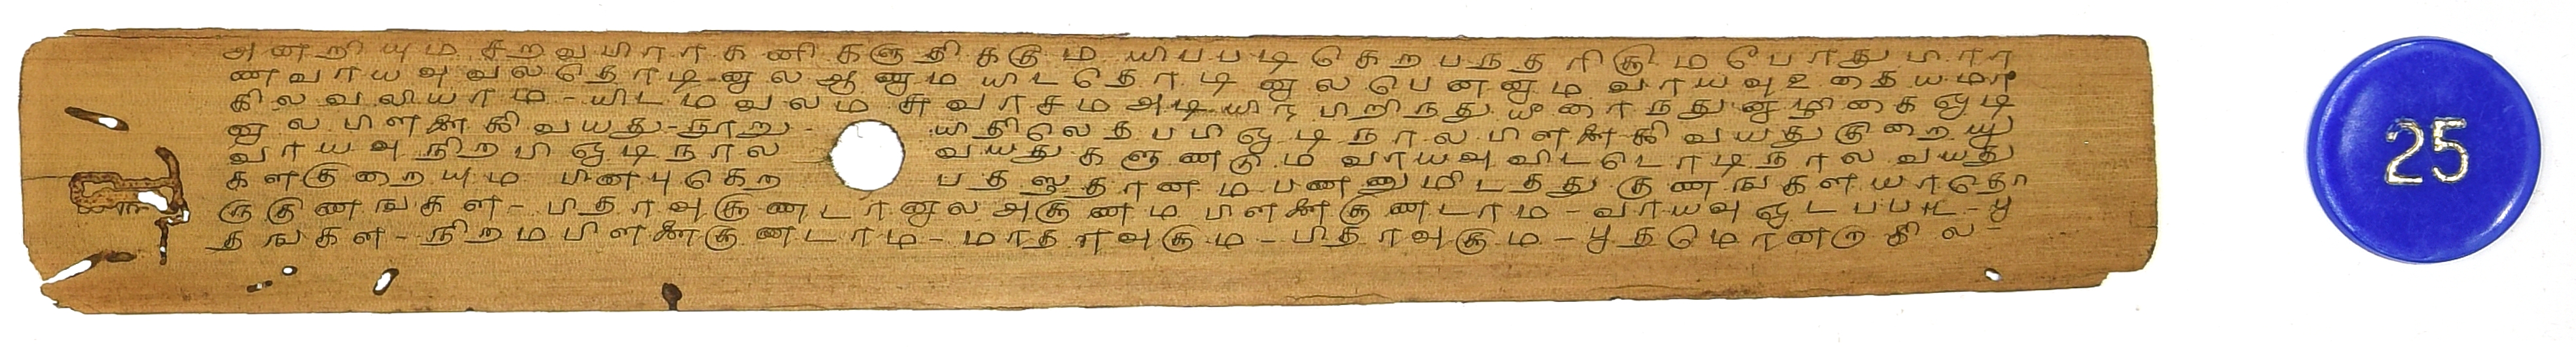 அனறியும சறுவயிராகனிகளுதிகடும யிபபடி கெறபநதரிகும போது பிரா
ணவாயவு வலதொடினுல ஆணும யிடதொடினுல பெனனும வாயவு உதையமா
கில வலியாம - யிடமவலம சுவாசம அடியிற பிறிநது யீரைநது னாழிகை ஓடி
னுல பிளளைககி வயது - நூறு - யதிலெத பபி ஓடிநால பிளளைககி வயது குறையு
வாயவு நிறபி ஓடிநால வயதுகளுணடும வாயவு விடடொடிநால வயது
களகுறையும பினபு கெற பதஜதானம பணணுமிடதது குணஙகள யாதொ
ரு குணஙகள - பிதாவுகுணடானுல அகுணம பிளளைகுணடாம - வாயவு ஓடபபட - பூ
தஙகள - நிறமபிளளைகுணடாம - மாதாவுகும - பிதாவுகும - பூதமொனறுகில -
25